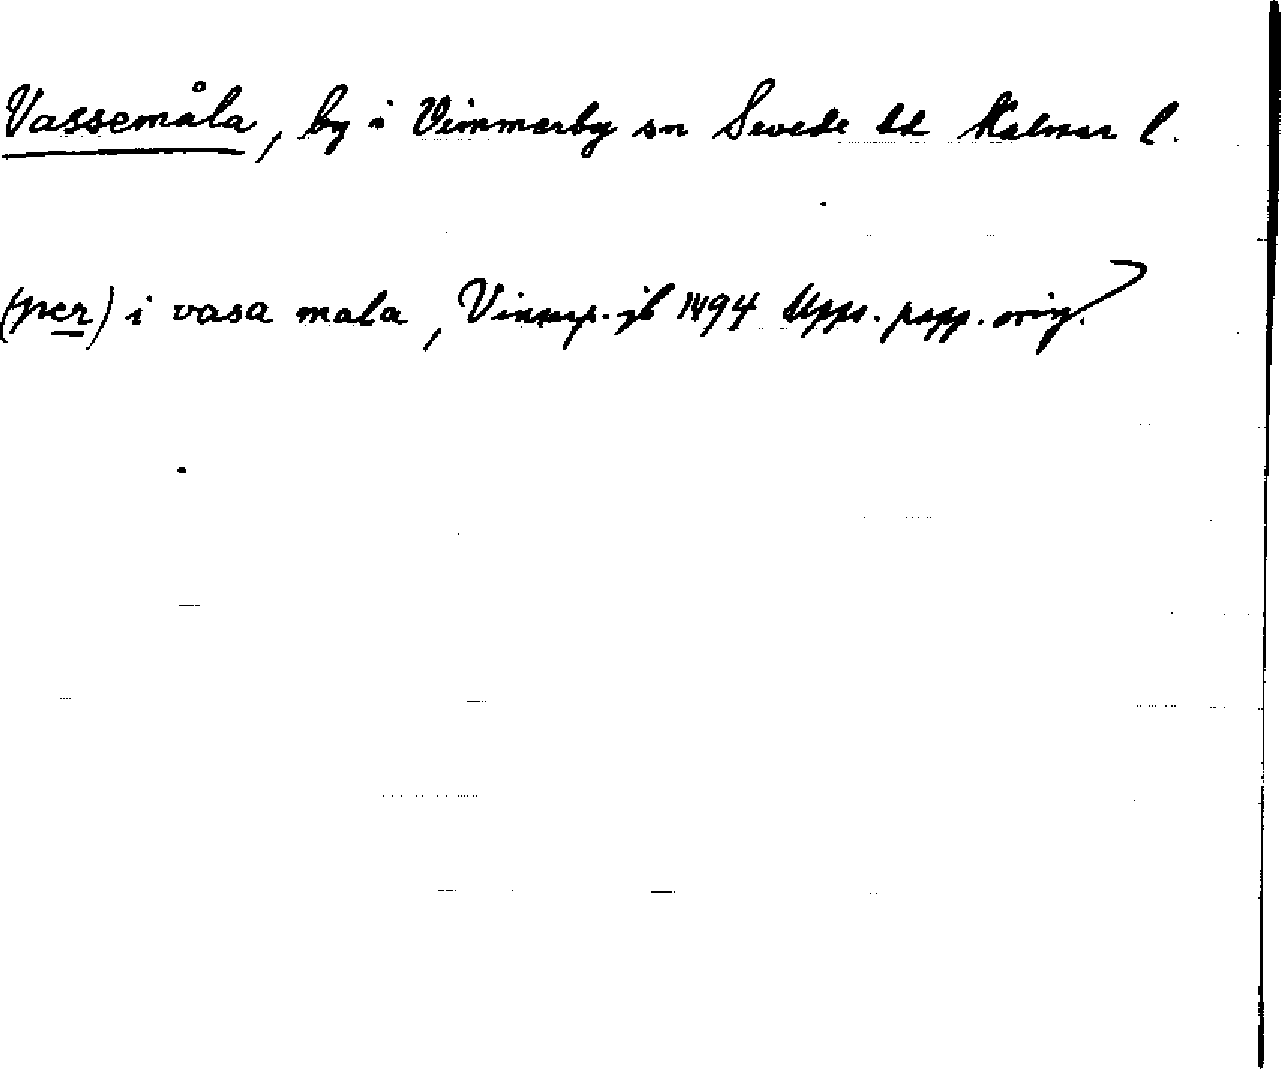 Vassemåla, by i Vimmerby sn Sevede hd Kalmar l.
(per) i vasa mala, Vinarp. jb 1494 Upps. papp. orig.